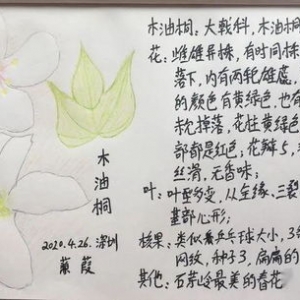 木油桐,大戟科,木油桐
花:雌雄异株,有时同株
落下,内有两轮雄蕊
的颜色有黄绿色,也有
未掉落,花柱黄绿色
部都是红色;花瓣5,
丝滑,无香味;
叶:叶型多变,从全缘、三裂
基部心形;
核果:类似乒乓球大小,3
网纹,种子3,扁扁的
其他:石芽岭最美的春花
木油桐
2020.4.26.深圳
蒹葭